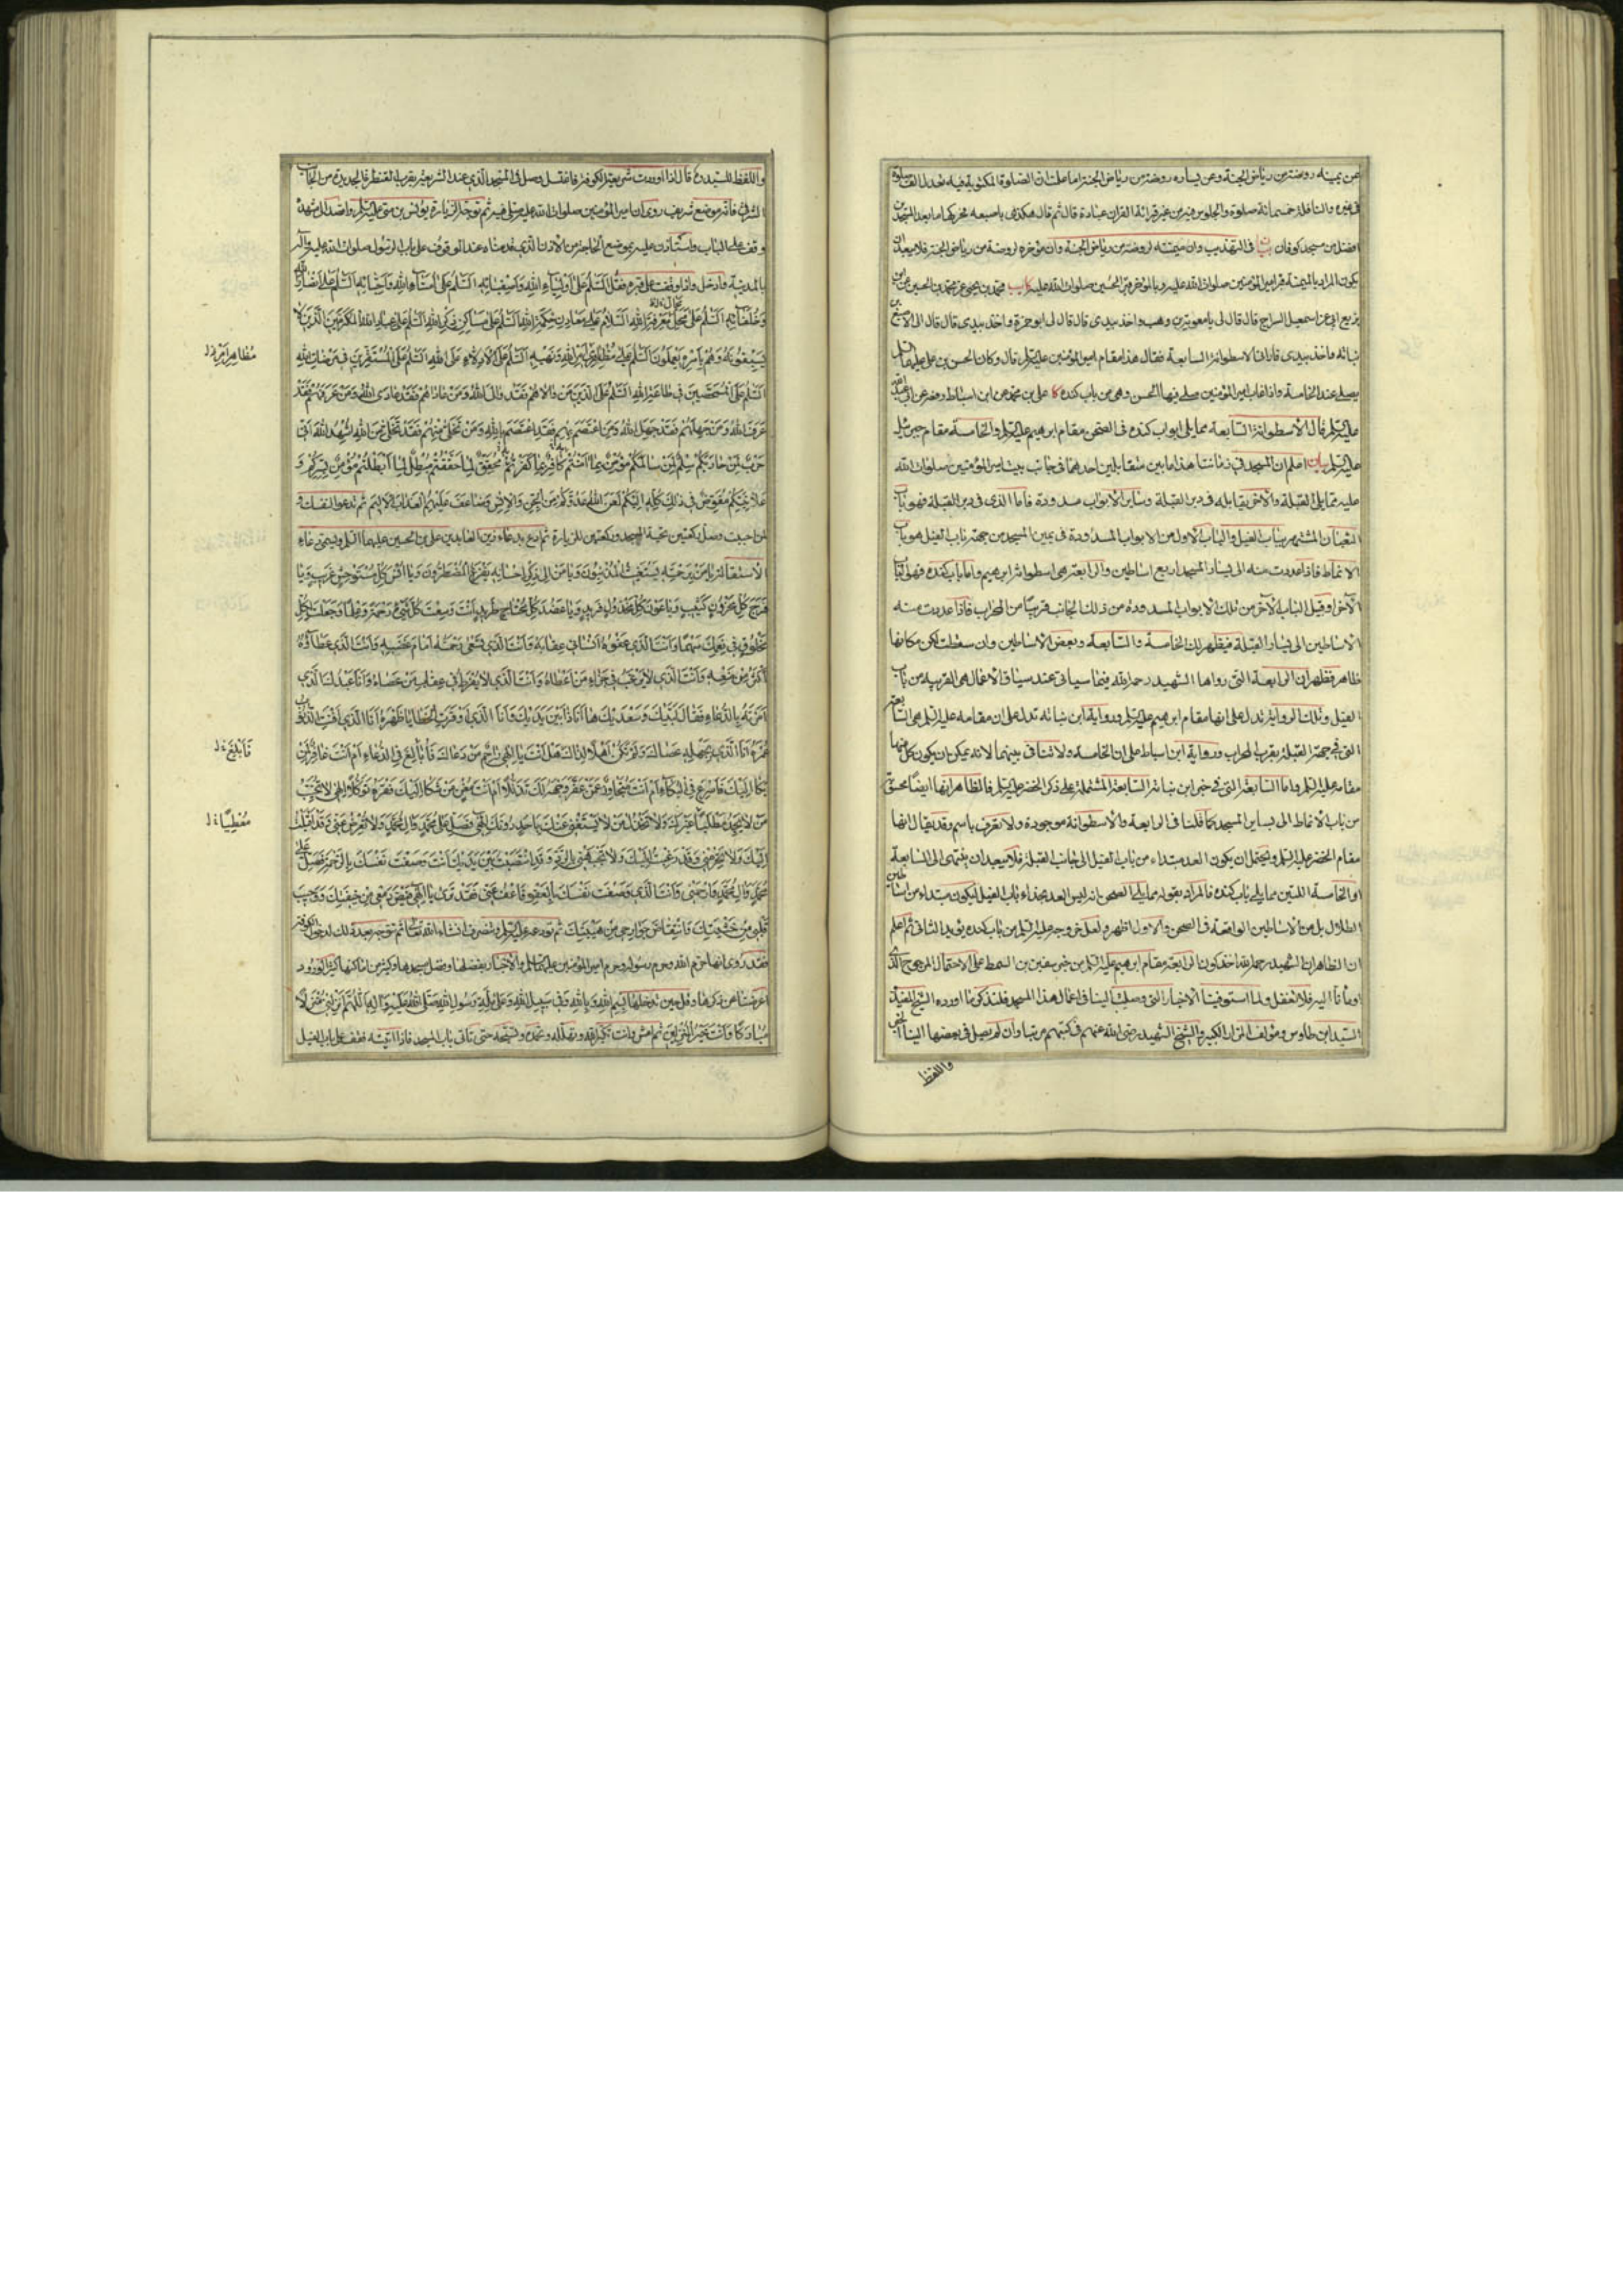 عن يمينه روضة من رياض الجنة وعن يساره روضة من رياض الجنة اما علمت ان الصلوة المكتوبة فيه تعدل الف صلوة
في غيره والنافلة خمسمائة صلوة والجلوس فيه من غير قرائة القران عبادة قال ثم قال هكذى باصبعه فحركها ما بعد المسجدين
افضل من مسجد كوفان بيان في التهذيب وان ميمنته لروضة من رياض الجنة وان مؤخره لروضة من رياض الجنة فلا يبعد ان
يكون المراد بالميمنة قبر امير المؤمنين صلوات الله عليه وبالمؤخر قبر الحسين صلوات الله عليه كا محمد بن يحيى عن محمد بن الحسين عن ابن
بزيع عن ابي اسمعيل السراج قال قال لي يا معوية بن وهب واخذ بيدي قال قال لي ابو حمزة واخذ بيدي قال قال لي الاصبغ بن
نباته واخذ بيدي فاراني الاسطوانة السابعة فقال هذا مقام امير المؤمنين عليه السلم قال وكان الحسن بن علي عليهما السلم
يصلي عند الخامسة واذا غاب امير المؤمنين صلى فيها الحسن وهي من باب كنده كا علي بن محمد عن ابن اسباط رفعه عن ابي عبد الله
عليه السلم قال الاسطوانة السابعة مما يلي ابواب كنده في الصحن مقام ابرهيم عليه السلم والخامسة مقام جبرئيل
عليه السلم بيان اعلم ان للمسجد في زماننا هذا بابين متقابلين احدهما في جانب بيت امير المؤمنين صلوات الله
عليه مما يلي القبلة والاخر يقابله في دبر القبلة وساير الابواب مسدودة فاما الذى في دبر القبلة فهو باب
الثعبان المشتهر بباب الفيل والباب الاول من الابواب المسدودة في يمين المسجد من جهة باب الفيل هو باب
الانماط فاذا عددت منه الى يسار المسجد اربع اساطين والرابعة هي اسطوانة ابرهيم واما باب كنده فهو الباب
الآخر او قبيل الباب الآخر من تلك الابواب المسدودة من ذلك الجانب قريبا من المحراب فاذا عددت منه
الاساطين الى يسار القبلة فيظهر لك الخامسة والسابعة وبعض الاساطين وان سقطت لكن مكانها
ظاهر فظهر ان الرابعة التى رواها الشهيد رحمه الله فيما سياتى عند سياق الاعمال هي القريبة من باب
الفيل وتلك الرواية تدل على انها مقام ابرهيم عليه السلم ورواية ابن نباته تدل على ان مقامه عليه السلم هي السابعة
التى في جهة القبلة بقرب المحراب ورواية ابن اسباط على ان الخامسة ولا تنافي بينهما لانه يمكن ان يكون كل منها
مقامه عليه السلم واما السابعة التى في خبر ابن نباتة السابعة المشتملة على ذكر الخضر عليه السلم فالظاهر انها ايضا تحسب
من باب الانماط الى يسار المسجد كما قلنا في الرابعة والاسطوانة موجودة ولا تعرف باسم وقد يقال انها
مقام الخضر عليه السلم ويحتمل ان يكون العد مبتداء من باب الفيل الى جانب القبلة فلا يبعد ان ينتهى الى السابعة
او الخامسة اللتين مما يلي باب كنده فالمراد بقوله مما يلي الصحن انه ليس العد بحذاء باب الفيل ليكون مبتداء من اساطين
الظلال بل من الاساطين الواقعة في الصحن والاول اظهر ولعل خروجه عليه السلم من باب كنده يؤيد الثانى ثم اعلم
ان الظاهر ان الشهيد رحمه الله اخذ كون الرابعة مقام ابرهيم عليه السلم من خبر سفين بن السمط على الاحتمال المرجوح الذى
اومأنا اليه فلا تغفل ولما استوفينا الاخبار التى وصلت الينا في اعمال هذا المسجد فلنذكر ما اورده الشيخ المفيد
السيد ابن طاوس ومؤلف المزار الكبير والشيخ الشهيد رضى الله عنهم في كتبهم مرتبا وان لم يصل في بعضها الينا الخبر
واللفظ
واللفظ للسيد ره قال اذا وردت شريعة الكوفة فاغتسل وصل في المسجد الذى عند الشريعة بقرب القنطرة الجديدة من الجانب
الشرقي فانه موضع شريف روى ان امير المؤمنين صلوات الله عليه صلى فيه ثم توجه لزيارة يونس بن متى عليه السلم واقصد الى مشهده
وقف على الباب واستأذن عليه بموضع الحاجة من الاذن الذى قدمناه عند الوقوف على باب الرسول صلوات الله عليه وآله
بالمدينة وادخل واذا وقفت على قبره فقل السلم على اولياء الله واصفيائه السلم على امناء الله واحبائه السلم على انصار الله
وخلفائه السلم على محال معرفة الله السلام على معادن حكمة الله السلم على مساكن ذكر الله السلم على عباد الله المكرمين الذين لا
يسبقونه بالقول وهم بأمره يعملون السلم على مظاهري امر الله ونهيه السلم على الادلاء على الله السلم على المستقرين في مرضات الله
السلم على الممحصين في طاعة الله السلم على الذين من والاهم فقد والى الله ومن عاداهم فقد عادى الله ومن عرفهم فقد
عرف الله ومن جهلهم فقد جهل الله ومن اعتصم بهم فقد اعتصم بالله ومن تخلى منهم فقد تخلى من الله اشهد الله انى
حرب لمن حاربكم سلم لمن سالمكم مؤمن بما امنتم به كافر بما كفرتم به محقق لما حققتم مبطل لما ابطلتم مؤمن بسركم و
علانيتكم مفوض في ذلك كله اليكم لعن الله عدوكم من الجن والانس وضاعف عليهم العذاب الاليم ثم تدعو لنفسك و
لمن احببت وصل ركعتين تحية المسجد وركعتين للزيارة ثم ادع بدعاء زين العابدين علي بن الحسين عليهما السلم ويسمى دعاء
الاستقالة يا من برحمته يستغيث المذنبون ويا من الى ذكر احسانه يفزع المضطرون ويا انس كل مستوحش غريب ويا
فرج كل محزون كئيب ويا عون كل مخذول فريد ويا عضد كل محتاج طريد انت وسعت كل شيء رحمة وعلما وجعلت لكل
مخلوق في نعمك سهما وانت الذى عفوه انسانى عقابه وانت الذى تسعى رحمته امام غضبه وانت الذى عطاؤه
اكثر من منعه وانت الذى لا يرغب في جزاء من اعطاه وانت الذى لا يفرط في عقاب من عصاه وانا عبدك الذى
امرته بالدعاء فقال لبيك وسعديك ها انا ذا بين يديك وانا الذى اوقرت الخطايا ظهره انا الذى افنت الذنوب
عمره انا الذى بجهله عصاك ولم تكن اهلا لذلك هل انت يا الهى راحم من دعاك فابالغ في الدعاء ام انت غافر لمن
بكا اليك فاسرع في البكاء ام انت متجاوز عمن عفر وجهه لك تذللا ام انت مغن من شكا اليك فقره توكلا الهى لا تخيب
من لا يجد مطلبا غيرك ولا تخذل من لا يستغنى عنك باحد دونك الهى فصل على محمد وال محمد ولا تعرض عنى وقد اقبلت
اليك ولا تحرمنى وقد رغبت اليك ولا تجبهنى بالرد وقد انتصبت بين يديك انت وصفت نفسك بالرحمة فصل على
محمد وال محمد وارحمنى وانت الذى وصفت نفسك بالعفو فاعف عنى فقد ترى يا الهى فيض دمعى من خيفتك ووجيب
قلبى من خشيتك وانتفاض جوارحى من هيبتك ثم تودعه عليه السلم وتنصرف انشاء الله تعالى ثم توجه بعد ذلك لدخول الكوفة
فقد روى انها حرم الله وحرم رسوله وحرم امير المؤمنين عليهما السلم والاخبار بفضلها وفضل مسجدها وكثير من اماكنها كثيرة الورود
اعرضنا عن ذكرها وقل حين تدخلها بسم الله وبالله وفي سبيل الله وعلى ملة رسول الله صلى الله عليه واله اللهم انزلنى منزلا
مباركا وانت خير المنزلين ثم امش وانت تكبر الله وتهلله وتحمده وتسبحه حتى تأتى باب المسجد فاذا اتيته فقف على باب الفيل
مظاهر امر ل
فابلغ ل
معطيا ل